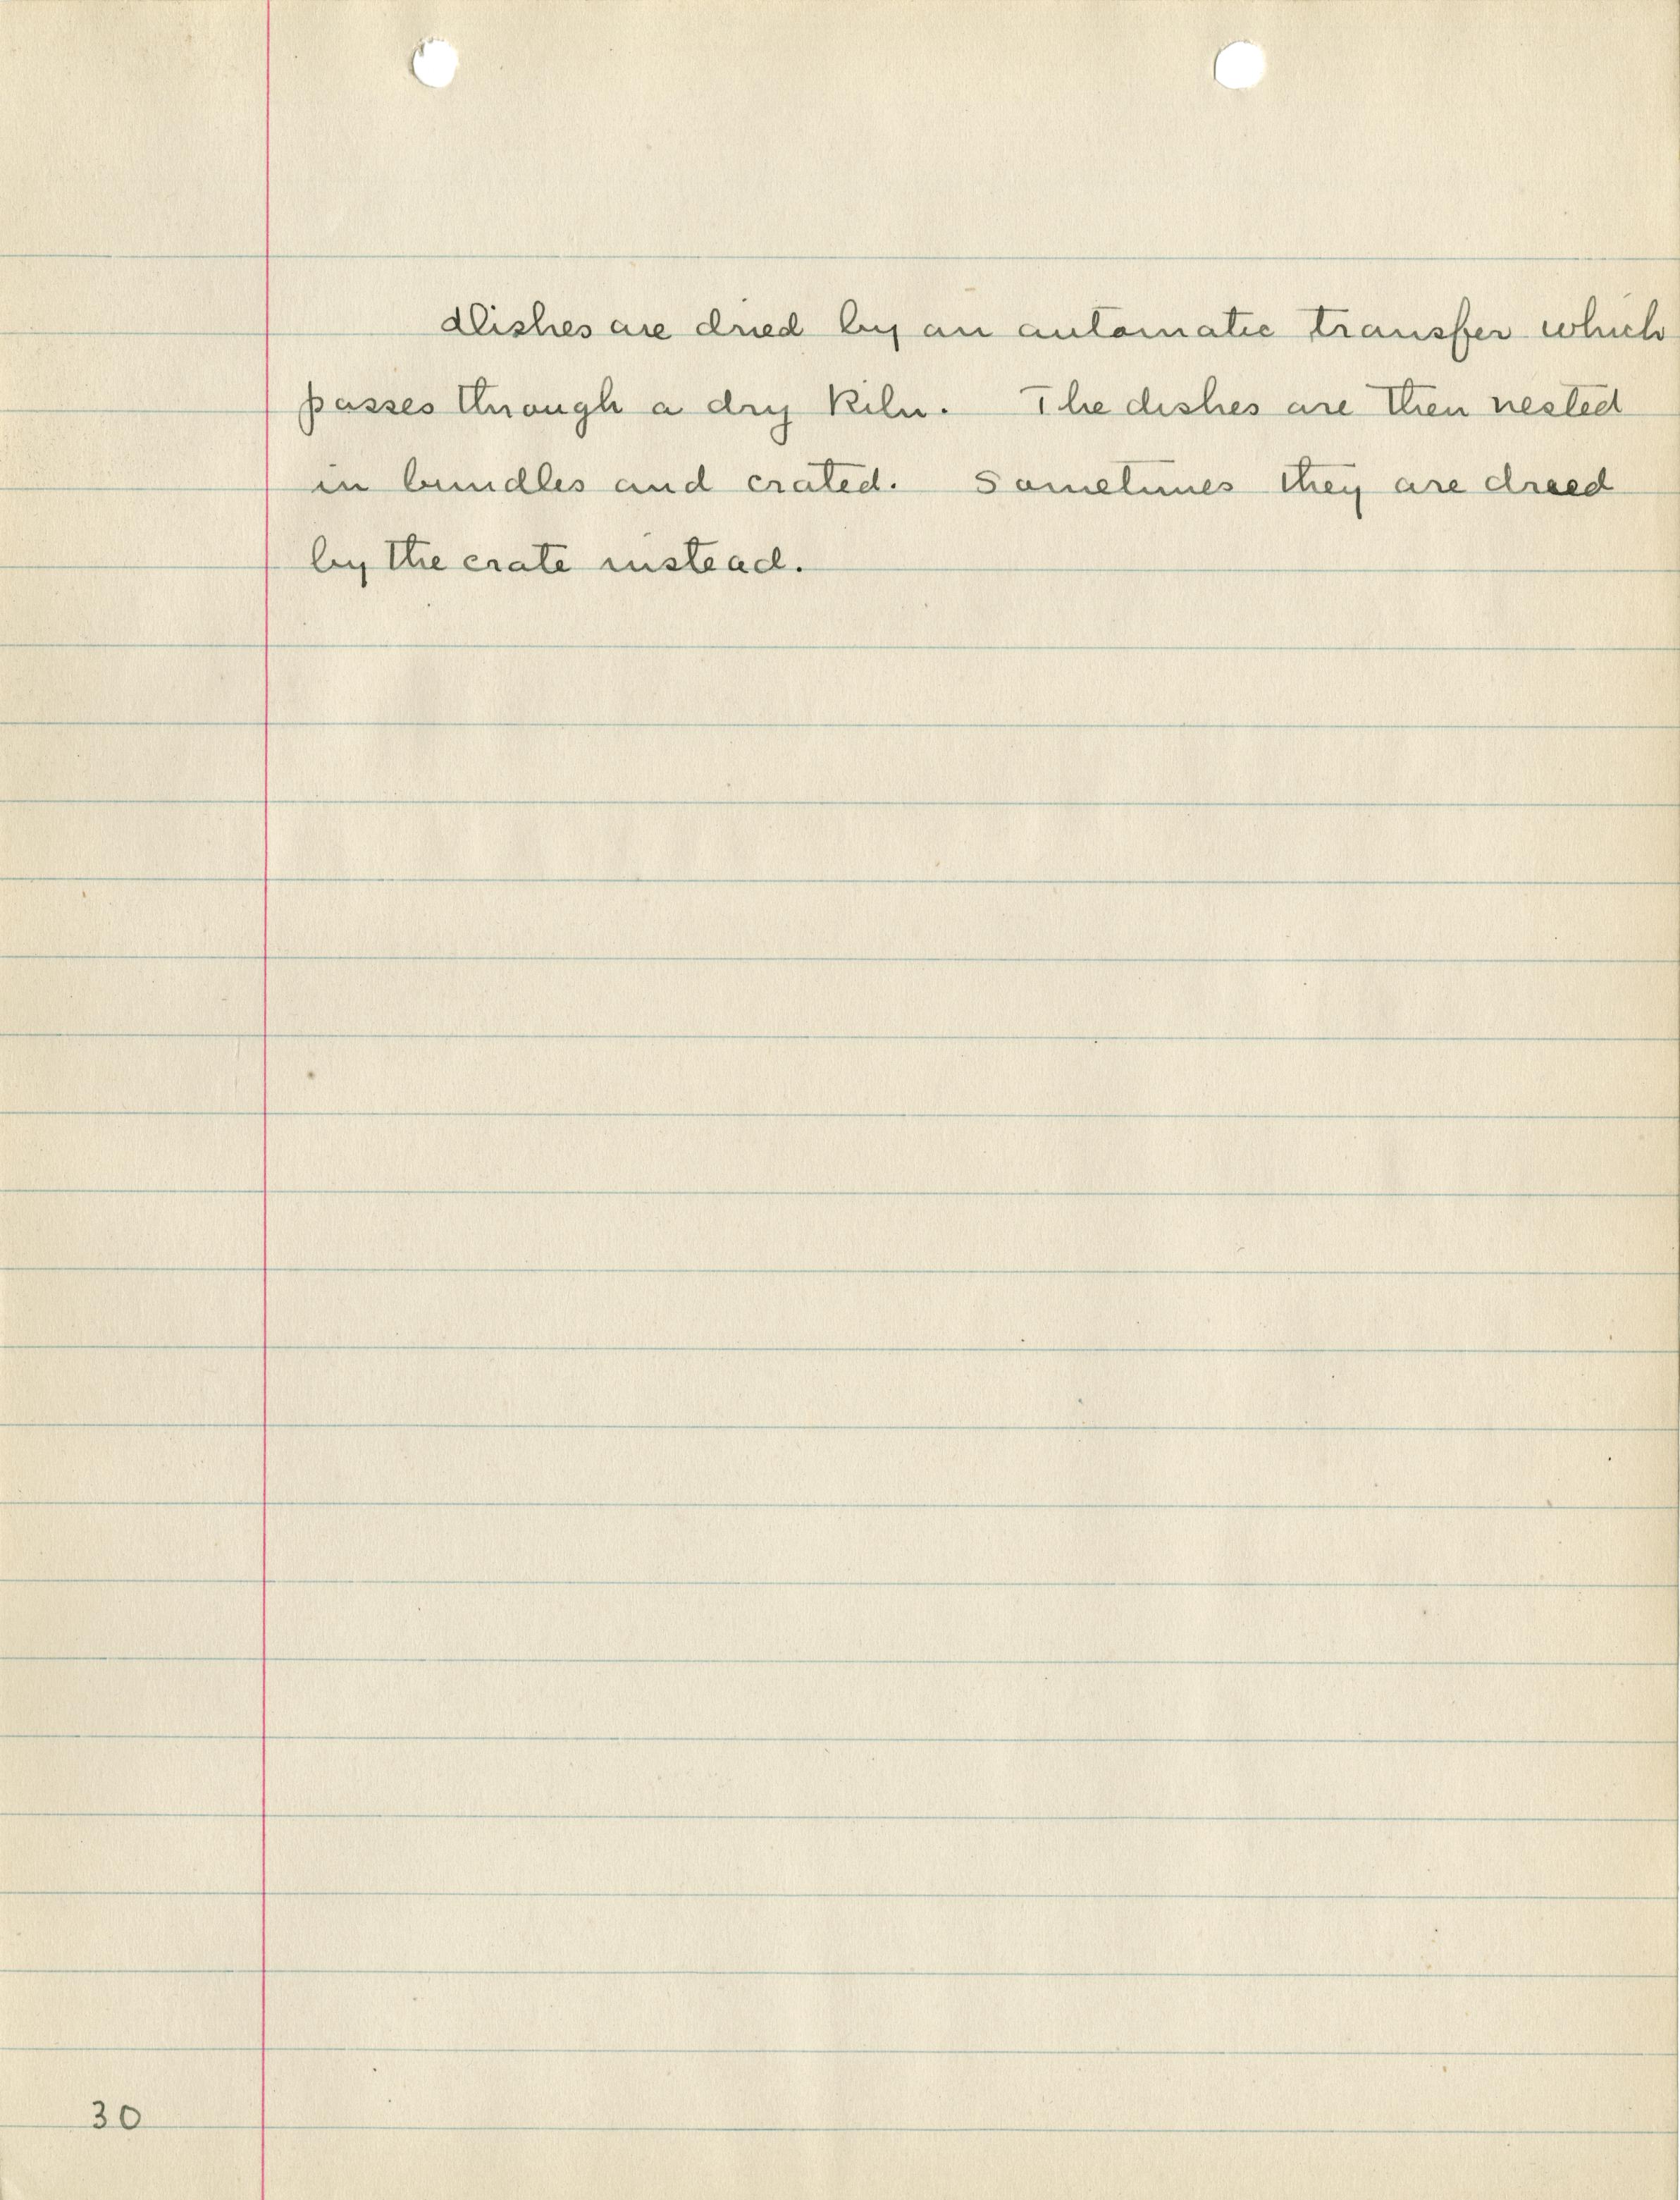 Dishes are dried by an automatic transfer which
passes through a dry kiln. The dishes are then nested
in bundles and crated. Sometimes they are dried
by the crate instead.
30